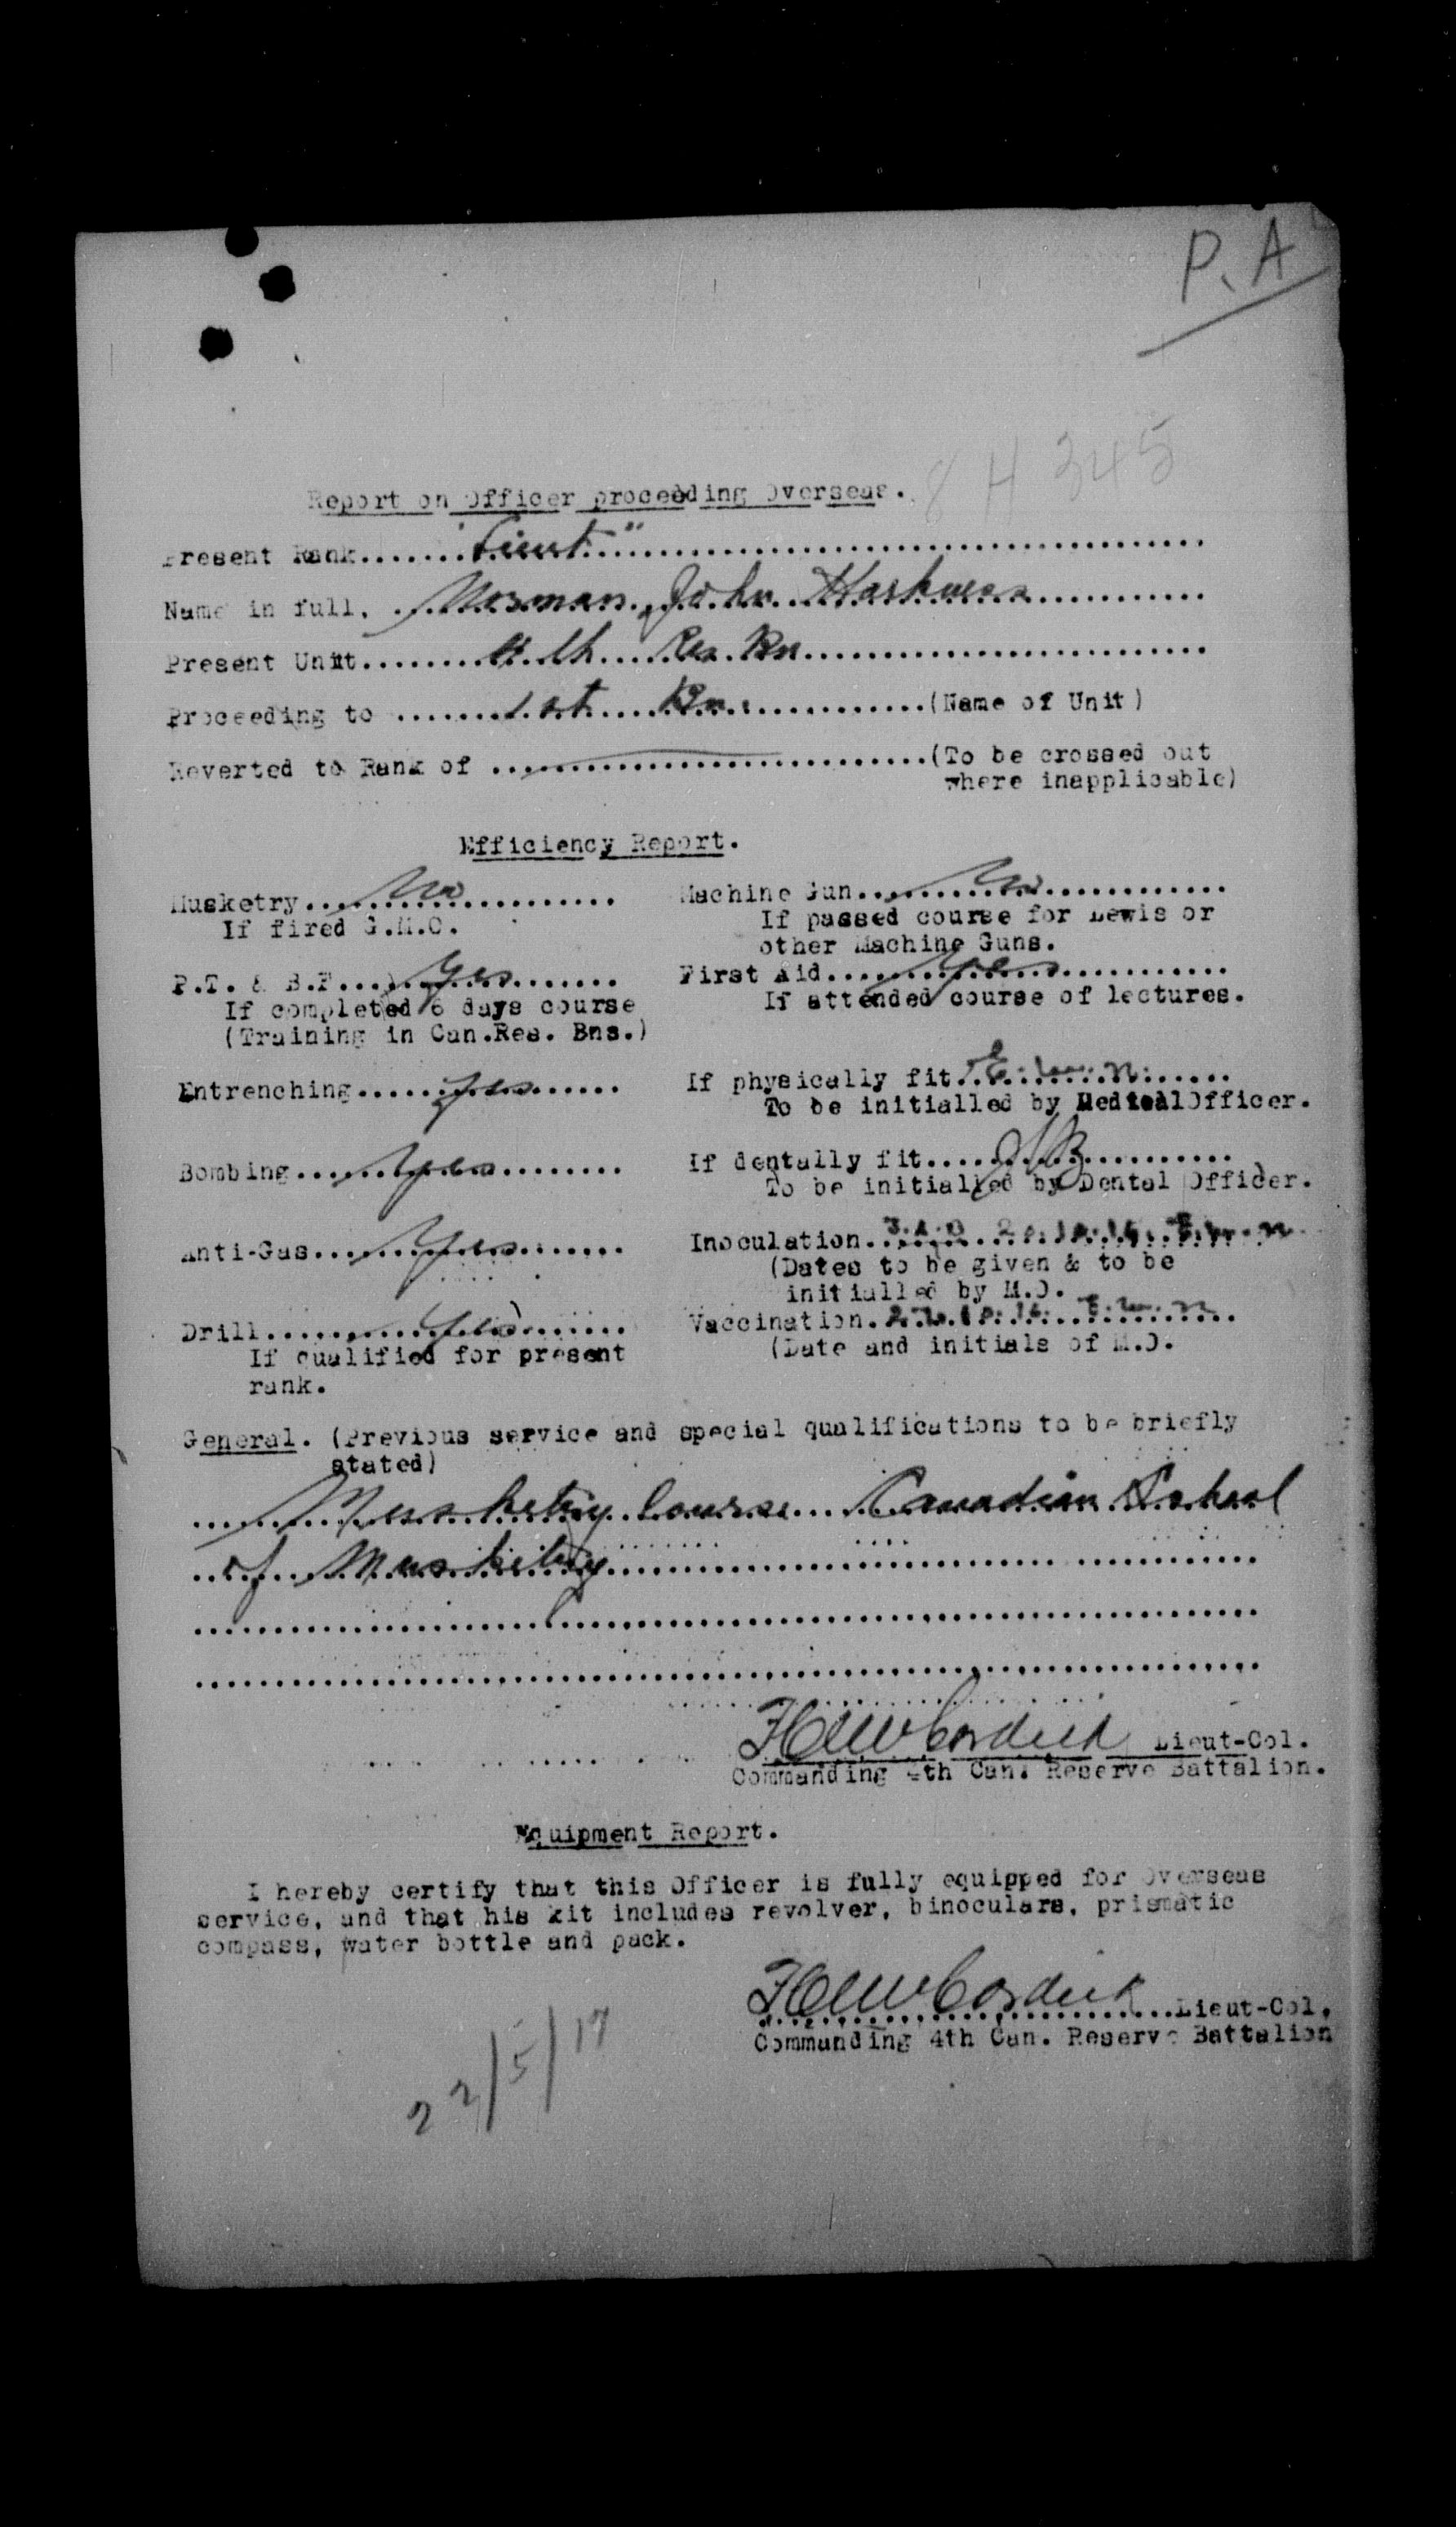 P.A
8 H 345
Report on Officer proceeding Overseas.
Present Rank......."Lieut"
Name in full. Norman John Harkness
Present Unit.......4th Res Bn
Proceeding to .......1st Bn.......(Name of Unit)
Reverted to Rank of .......(To be crossed out
where inapplicable)
Efficiency Report.
Musketry....No.... Machine Gun....No....
If fired G.M.C. If passed course for Lewis or
other Machine Guns.
P.T. & B.F....Yes.... First Aid....Yes....
If completed 6 days course If attended course of lectures.
(Training in Can.Res. Bns.)
Entrenching....yes.... If physically fit....
To be initialled by Medical Officer.
Bombing....Yes.... If dentally fit....
To be initialled by Dental Officer.
Anti-Gas....Yes.... Inoculation....
(Dates to be given & to be
initialled by M.O.
Drill....Yes.... Vaccination....
If qualified for present (Date and initials of M.O.
rank.
General. (Previous service and special qualifications to be briefly
stated)
Musketry Course Canadian School
of Musketry
Lieut-Col.
Commanding 4th Can. Reserve Battalion.
Equipment Report.
I hereby certify that this Officer is fully equipped for Overseas
service, and that his kit includes revolver, binoculars, prismatic
compass, water bottle and pack.
Lieut-Col.
Commanding 4th Can. Reserve Battalion
22/5/17